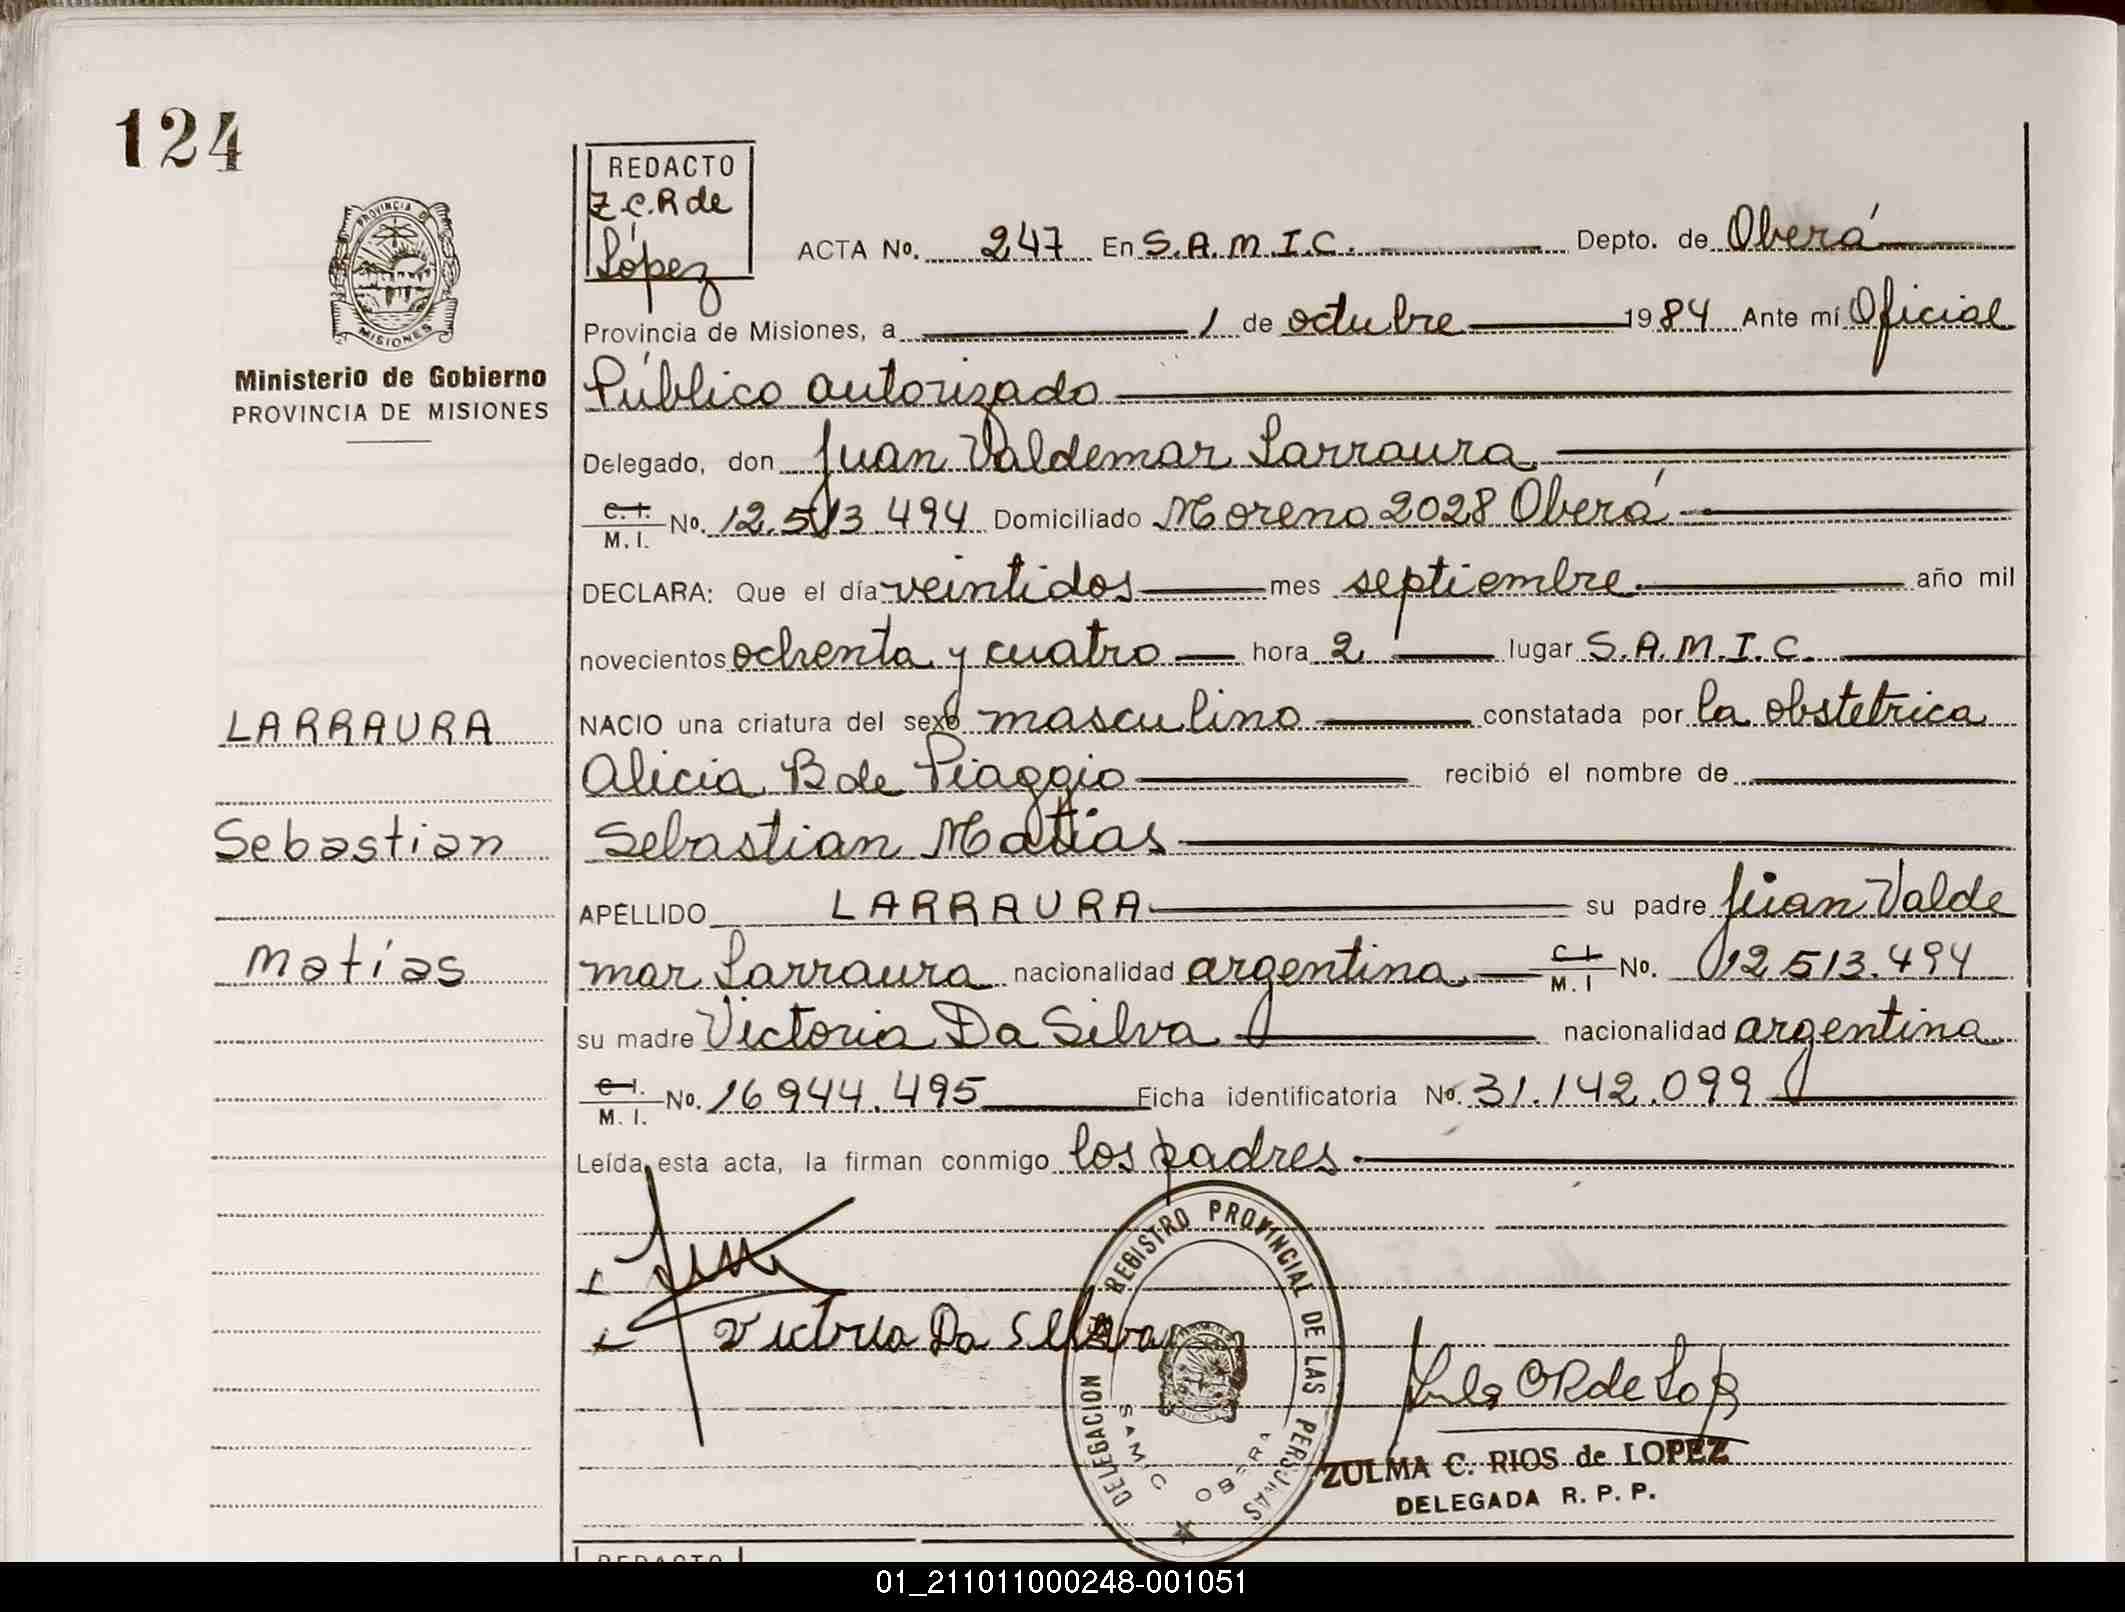 124
REDACTO
Z.C.R de
López
PROVINCIA DE
MISIONES
Ministerio de Gobierno
PROVINCIA DE MISIONES
ACTA No. 247 En S.A.M.I.C. Depto. de Oberá
Provincia de Misiones, a 1 de octubre 1984 Ante mí Oficial
Público autorizado
Delegado, don Juan Valdemar Larraura
C.I. M.I. No. 12.513.494 Domiciliado Moreno 2028 Oberá
DECLARA: Que el día veintidos mes septiembre año mil
novecientos ochenta y cuatro hora 2 lugar S.A.M.I.C.
LARRAURA
NACIO una criatura del sexo masculino constatada por la obstetrica
Alicia B de Piaggio recibió el nombre de
Sebastian
Sebastian Matias
APELLIDO LARRAURA su padre Juan Valde
Matías
mar Larraura nacionalidad argentina C.I. M.I No. 12.513.494
su madre Victoria Da Silva nacionalidad argentina
C.I. M.I. No. 16944.495 Ficha identificatoria No. 31.142.099
Leída esta acta, la firman conmigo los padres
Victoria Da Silva
DELEGACION REGISTRO PROVINCIAL DE LAS PERSONAS
SAMIC OBERA
ZULMA C. RIOS de LOPEZ
DELEGADA R. P. P.
REDACTO
01_211011000248-001051